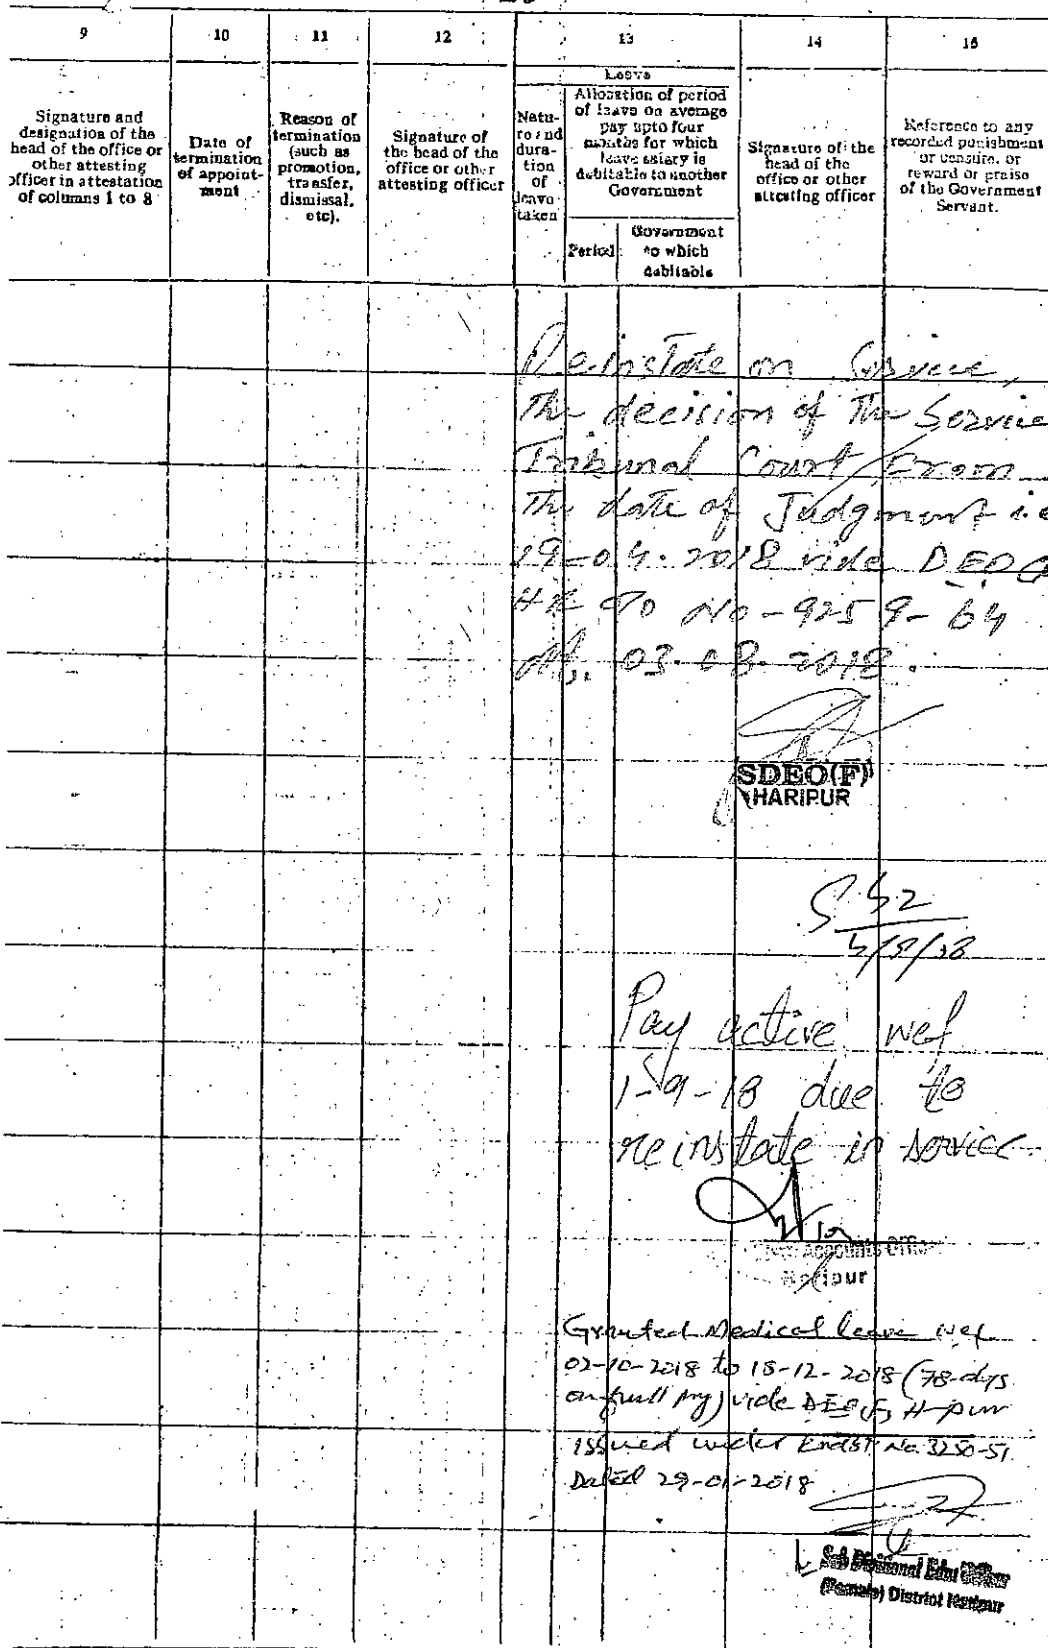 9 10 11 12 13 14 15
Signature and
designation of the
head of the office or
other attesting
officer in attestation
of columns 1 to 8
Date of
termination
of appoint-
ment
Reason of
termination
(such as
promotion,
transfer,
dismissal,
etc).
Signature of
the head of the
office or other
attesting officer
Leave
Natu-
re and
dura-
tion
of
leave
taken
Allocation of period
of leave on average
pay upto four
months for which
leave salary is
debitable to another
Government
Period
Government
to which
debitable
Signature of the
head of the
office or other
attesting officer
Reference to any
recorded punishment
or censure, or
reward or praise
of the Government
Servant.
Reinstate on Service,
The decision of The Service
Tribunal Court From
The date of Judgment i.e
19-04-2018 vide DEO
No-9259-64
03-08-2018.
SDEO(F)
HARIPUR
Pay active wef
1-9-18 due to
reinstate in service
Accounts Office
Haripur
Granted Medical leave wef
02-10-2018 to 18-12-2018 (78-dys
on full pay) vide DEO(F) H-pur
issued under Endst No. 3250-51
Dated 29-01-2018
Sub Divisional Edu Officer
(Female) District Haripur